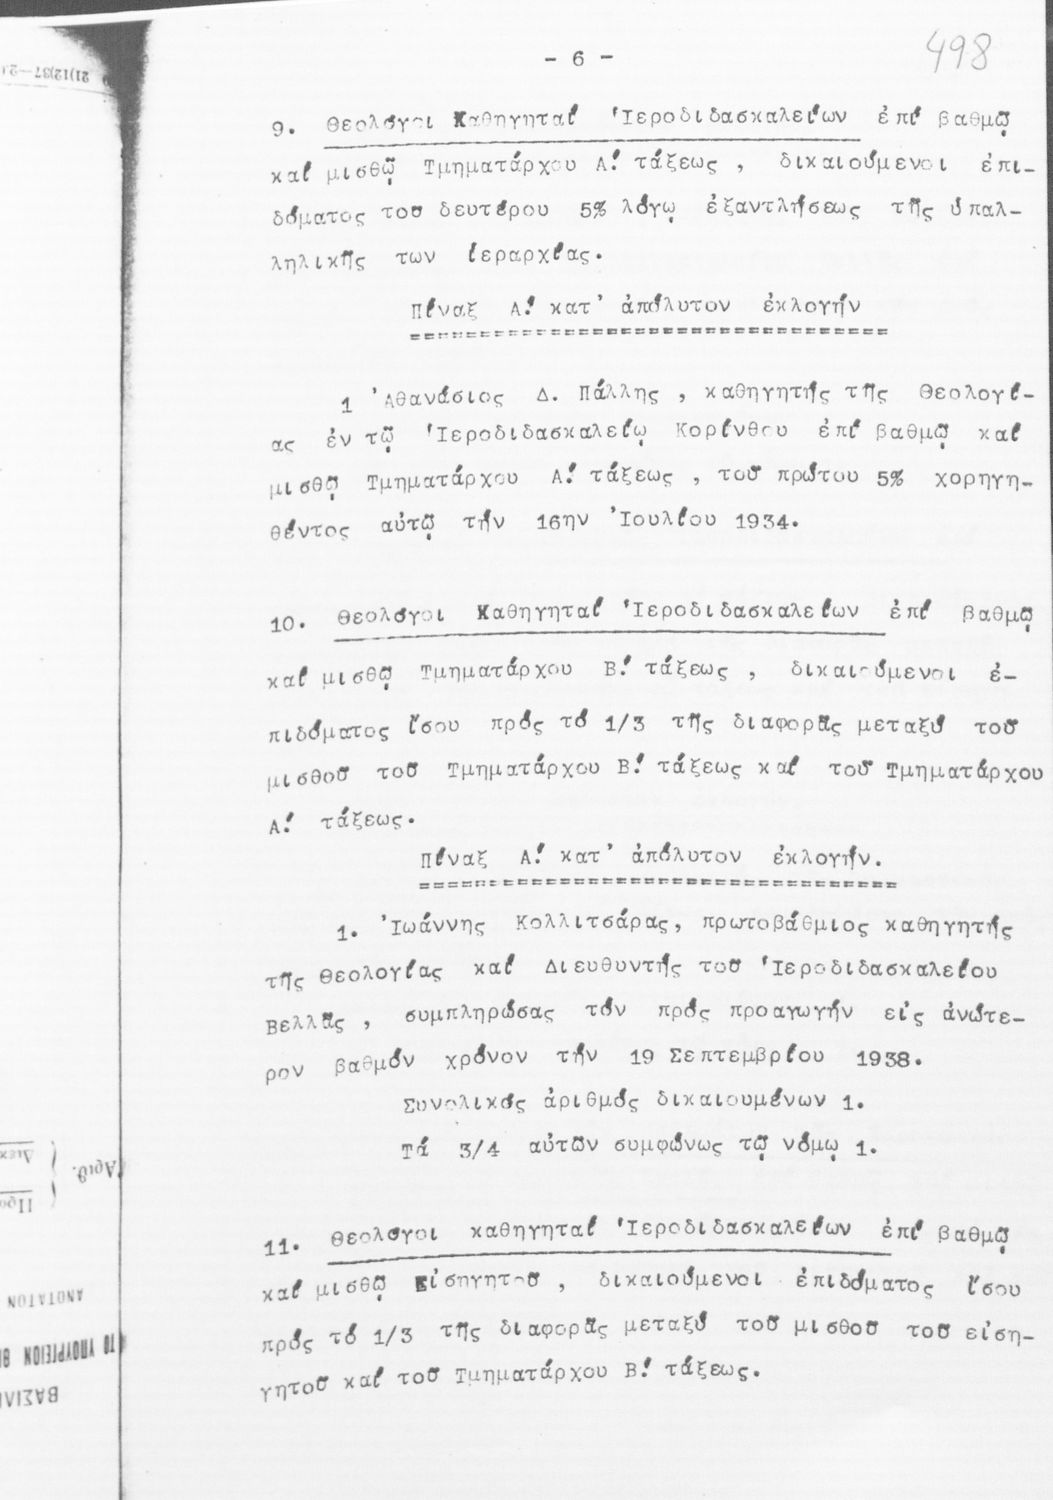 - 6 -
498
9. Θεολόγοι Καθηγηταί Ἱεροδιδασκαλείων ἐπί βαθμῷ
καί μισθῷ Τμηματάρχου Α! τάξεως , δικαιούμενοι ἐπι-
δόματος του δευτέρου 5% λόγῳ ἐξαντλήσεως τῆς ὑπαλ-
ληλικῆς των ἱεραρχίας.
Πίναξ Α! κατ' ἀπόλυτον ἐκλογήν
==================================
1 Ἀθανάσιος Δ. Πάλλης , καθηγητής τῆς Θεολογί-
ας ἐν τῷ Ἱεροδιδασκαλείῳ Κορίνθου ἐπί βαθμῷ καί
μισθῷ Τμηματάρχου Α! τάξεως , τοῦ πρώτου 5% χορηγη-
θέντος αὐτῷ τήν 16ην Ἰουλίου 1934.
10. Θεολόγοι Καθηγηταί Ἱεροδιδασκαλείων ἐπί βαθμῷ
καί μισθῷ Τμηματάρχου Β! τάξεως , δικαιούμενοι ἐ-
πιδόματος ἴσου πρός τό 1/3 τῆς διαφορᾶς μεταξύ τοῦ
μισθοῦ τοῦ Τμηματάρχου Β! τάξεως καί τοῦ Τμηματάρχου
Α! τάξεως.
Πίναξ Α! κατ' ἀπόλυτον ἐκλογήν.
==================================
1. Ἰωάννης Κολλιτσάρας, πρωτοβάθμιος καθηγητής
τῆς Θεολογίας καί Διευθυντής τοῦ Ἱεροδιδασκαλείου
Βελλᾶς , συμπληρώσας τόν πρός προαγωγήν εἰς ἀνώτε-
ρον βαθμόν χρόνον τήν 19 Σεπτεμβρίου 1938.
Συνολικός ἀριθμός δικαιουμένων 1.
Τά 3/4 αὐτῶν συμφώνως τῷ νόμῳ 1.
11. Θεολόγοι καθηγηταί Ἱεροδιδασκαλείων ἐπί βαθμῷ
καί μισθῷ Εἰσηγητοῦ , δικαιούμενοι ἐπιδόματος ἴσου
πρός τό 1/3 τῆς διαφορᾶς μεταξύ τοῦ μισθοῦ τοῦ εἰση-
γητοῦ καί τοῦ Τμηματάρχου Β! τάξεως.
Ἀριθ.
ΑΝΩΤΑΤΟΝ
ΤΟ ΥΠΟΥΡΓΕΙΟΝ